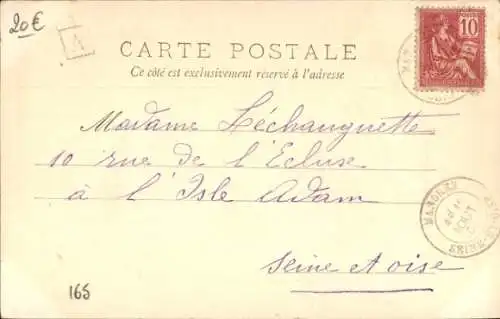 20€
A
CARTE POSTALE
Ce côté est exclusivement réservé à l'adresse
POSTES
10
Madame Léchanguette
10 rue de l'Ecluse
à l'Isle Adam
Seine et oise
165
AOUT
SEINE-ET-OISE